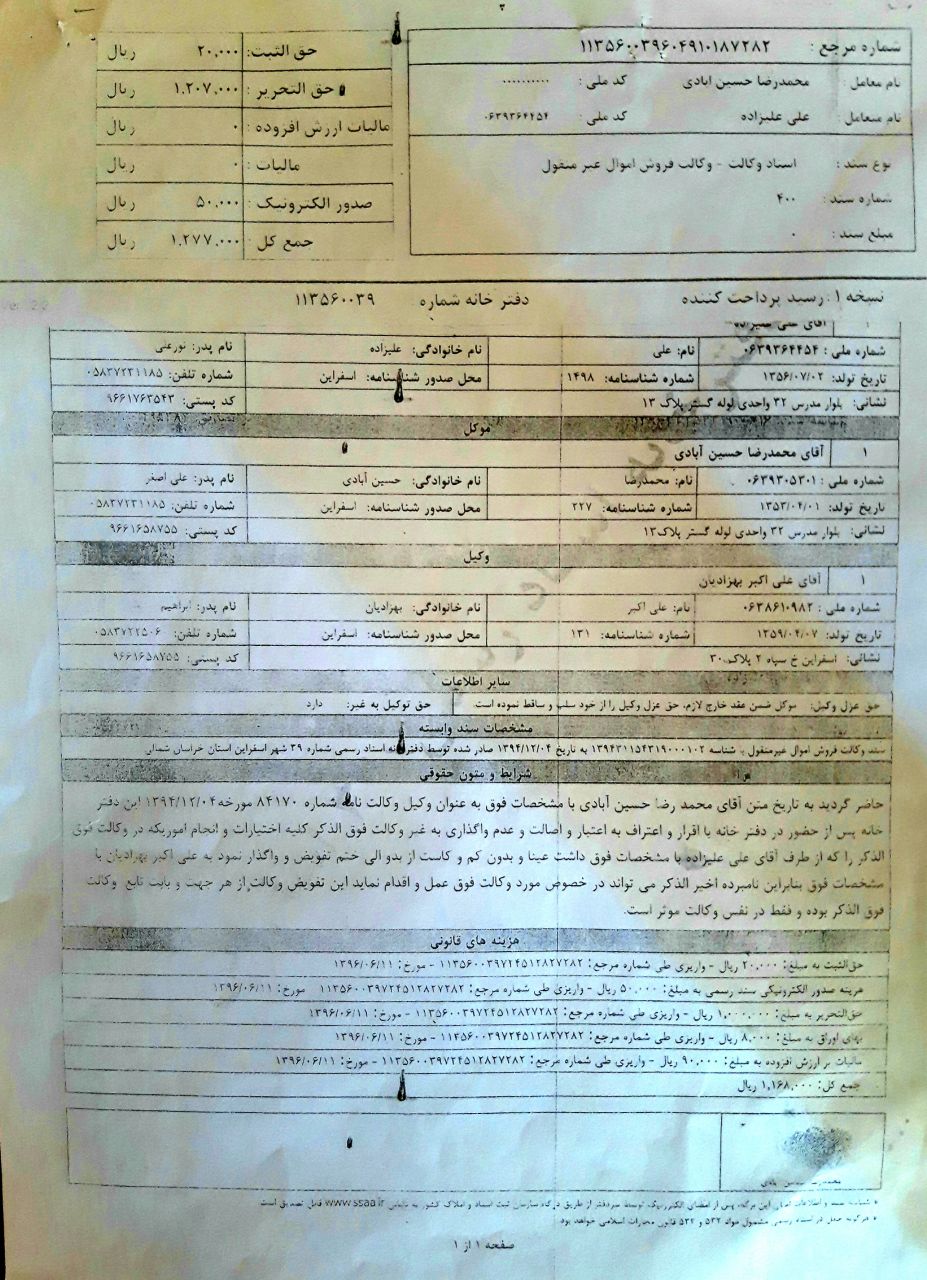 شماره مرجع : ۱۱۳۵۶۰۰۳۹۶۰۴۹۱۰۱۸۷۲۸۲
نام معامل : محمدرضا حسین ابادی کد ملی : ۰۰۰۰۰۰۰۰۰۰
نام متعامل : علی علیزاده کد ملی : ۰۶۳۹۳۶۴۴۵۴
نوع سند : اسناد وکالت - وکالت فروش اموال غیر منقول
شماره سند : ۴۰۰
مبلغ سند : ۰
حق الثبت: ۲۰,۰۰۰ ریال
حق التحریر : ۱,۲۰۷,۰۰۰ ریال
مالیات ارزش افزوده : ۰ ریال
مالیات : ۰ ریال
صدور الکترونیک : ۵۰,۰۰۰ ریال
جمع کل : ۱,۲۷۷,۰۰۰ ریال
نسخه ۱ : رسید پرداخت کننده دفتر خانه شماره ۱۱۳۵۶۰۰۳۹
۱ آقای علی علیزاده
شماره ملی : ۰۶۳۹۳۶۴۴۵۴ نام: علی نام خانوادگی: علیزاده نام پدر: نورعلی
تاریخ تولد: ۱۳۵۶/۰۷/۰۲ شماره شناسنامه: ۱۴۹۸ محل صدور شناسنامه: اسفراین شماره تلفن: ۰۵۸۳۷۲۳۱۱۸۵
نشانی: بلوار مدرس ۳۲ واحدی لوله گستر پلاک ۱۳ کد پستی: ۹۶۶۱۷۶۳۵۴۳
موکل
۱ آقای محمدرضا حسین آبادی
شماره ملی : ۰۶۳۹۳۰۵۳۰۱ نام: محمدرضا نام خانوادگی: حسین آبادی نام پدر: علی اصغر
تاریخ تولد: ۱۳۵۳/۰۴/۰۱ شماره شناسنامه: ۲۲۷ محل صدور شناسنامه: اسفراین شماره تلفن: ۰۵۸۳۷۲۳۱۱۸۵
نشانی: بلوار مدرس ۳۲ واحدی لوله گستر پلاک۱۳ کد پستی: ۹۶۶۱۶۵۸۷۵۵
وکیل
۱ آقای علی اکبر بهزادیان
شماره ملی : ۰۶۳۸۶۱۰۹۸۲ نام: علی اکبر نام خانوادگی: بهزادیان نام پدر: ابراهیم
تاریخ تولد: ۱۳۵۹/۰۴/۰۷ شماره شناسنامه: ۱۳۱ محل صدور شناسنامه: اسفراین شماره تلفن: ۰۵۸۳۷۲۲۵۰۶
نشانی: اسفراین خ سپاه ۲ پلاک ۳۰ کد پستی: ۹۶۶۱۶۵۸۷۵۵
سایر اطلاعات
حق عزل وکیل: موکل ضمن عقد خارج لازم، حق عزل وکیل را از خود سلب و ساقط نموده است. حق توکیل به غیر: دارد
مشخصات سند وابسته
سند وکالت فروش اموال غیرمنقول با شناسه ۱۳۹۴۳۱۱۵۴۳۱۹۰۰۰۱۰۲ به تاریخ ۱۳۹۴/۱۲/۰۴ صادر شده توسط دفترخانه اسناد رسمی شماره ۳۹ شهر اسفراین استان خراسان شمالی
شرایط و متون حقوقی
حاضر گردید به تاریخ متن آقای محمد رضا حسین آبادی با مشخصات فوق به عنوان وکیل وکالت نامه شماره ۸۴۱۷۰ مورخه ۱۳۹۴/۱۲/۰۴ این دفتر
خانه پس از حضور در دفتر خانه با اقرار و اعتراف به اعتبار و اصالت و عدم واگذاری به غیر وکالت فوق الذکر کلیه اختیارات و انجام اموریکه در وکالت فوق
الذکر را که از طرف آقای علی علیزاده با مشخصات فوق داشت عینا و بدون کم و کاست از بدو الی ختم تفویض و واگذار نمود به علی اکبر بهزادیان با
مشخصات فوق بنابراین نامبرده اخیر الذکر می تواند در خصوص مورد وکالت فوق عمل و اقدام نماید این تفویض وکالت از هر جهت و بابت تابع وکالت
فوق الذکر بوده و فقط در نفس وکالت موثر است.
هزینه های قانونی
حق‌الثبت به مبلغ: ۲۰,۰۰۰ ریال - واریزی طی شماره مرجع: ۱۱۳۵۶۰۰۳۹۷۲۴۵۱۲۸۲۷۲۸۲ - مورخ: ۱۳۹۶/۰۶/۱۱
هزینه صدور الکترونیکی سند رسمی به مبلغ: ۵۰,۰۰۰ ریال - واریزی طی شماره مرجع: ۱۱۳۵۶۰۰۳۹۷۲۴۵۱۲۸۲۷۲۸۲ مورخ: ۱۳۹۶/۰۶/۱۱
حق‌التحریر به مبلغ: ۱,۰۰۰,۰۰۰ ریال - واریزی طی شماره مرجع: ۱۱۳۵۶۰۰۳۹۷۲۴۵۱۲۸۲۷۲۸۲ - مورخ: ۱۳۹۶/۰۶/۱۱
بهای اوراق به مبلغ: ۸,۰۰۰ ریال - واریزی طی شماره مرجع: ۱۱۳۵۶۰۰۳۹۷۲۴۵۱۲۸۲۷۲۸۲ - مورخ: ۱۳۹۶/۰۶/۱۱
مالیات بر ارزش افزوده به مبلغ: ۹۰,۰۰۰ ریال - واریزی طی شماره مرجع: ۱۱۳۵۶۰۰۳۹۷۲۴۵۱۲۸۲۷۲۸۲ - مورخ: ۱۳۹۶/۰۶/۱۱
جمع کل: ۱,۱۶۸,۰۰۰ ریال
* شناسه سند و اطلاعات این برگه، پس از امضای الکترونیک توسط سردفتر از طریق درگاه سازمان ثبت اسناد و املاک کشور به نشانی www.ssaa.ir قابل تصدیق است
* هرگونه جعل در اسناد رسمی مشمول مواد ۵۳۲ و ۵۳۳ قانون مجازات اسلامی خواهد بود
صفحه ۱ از ۱